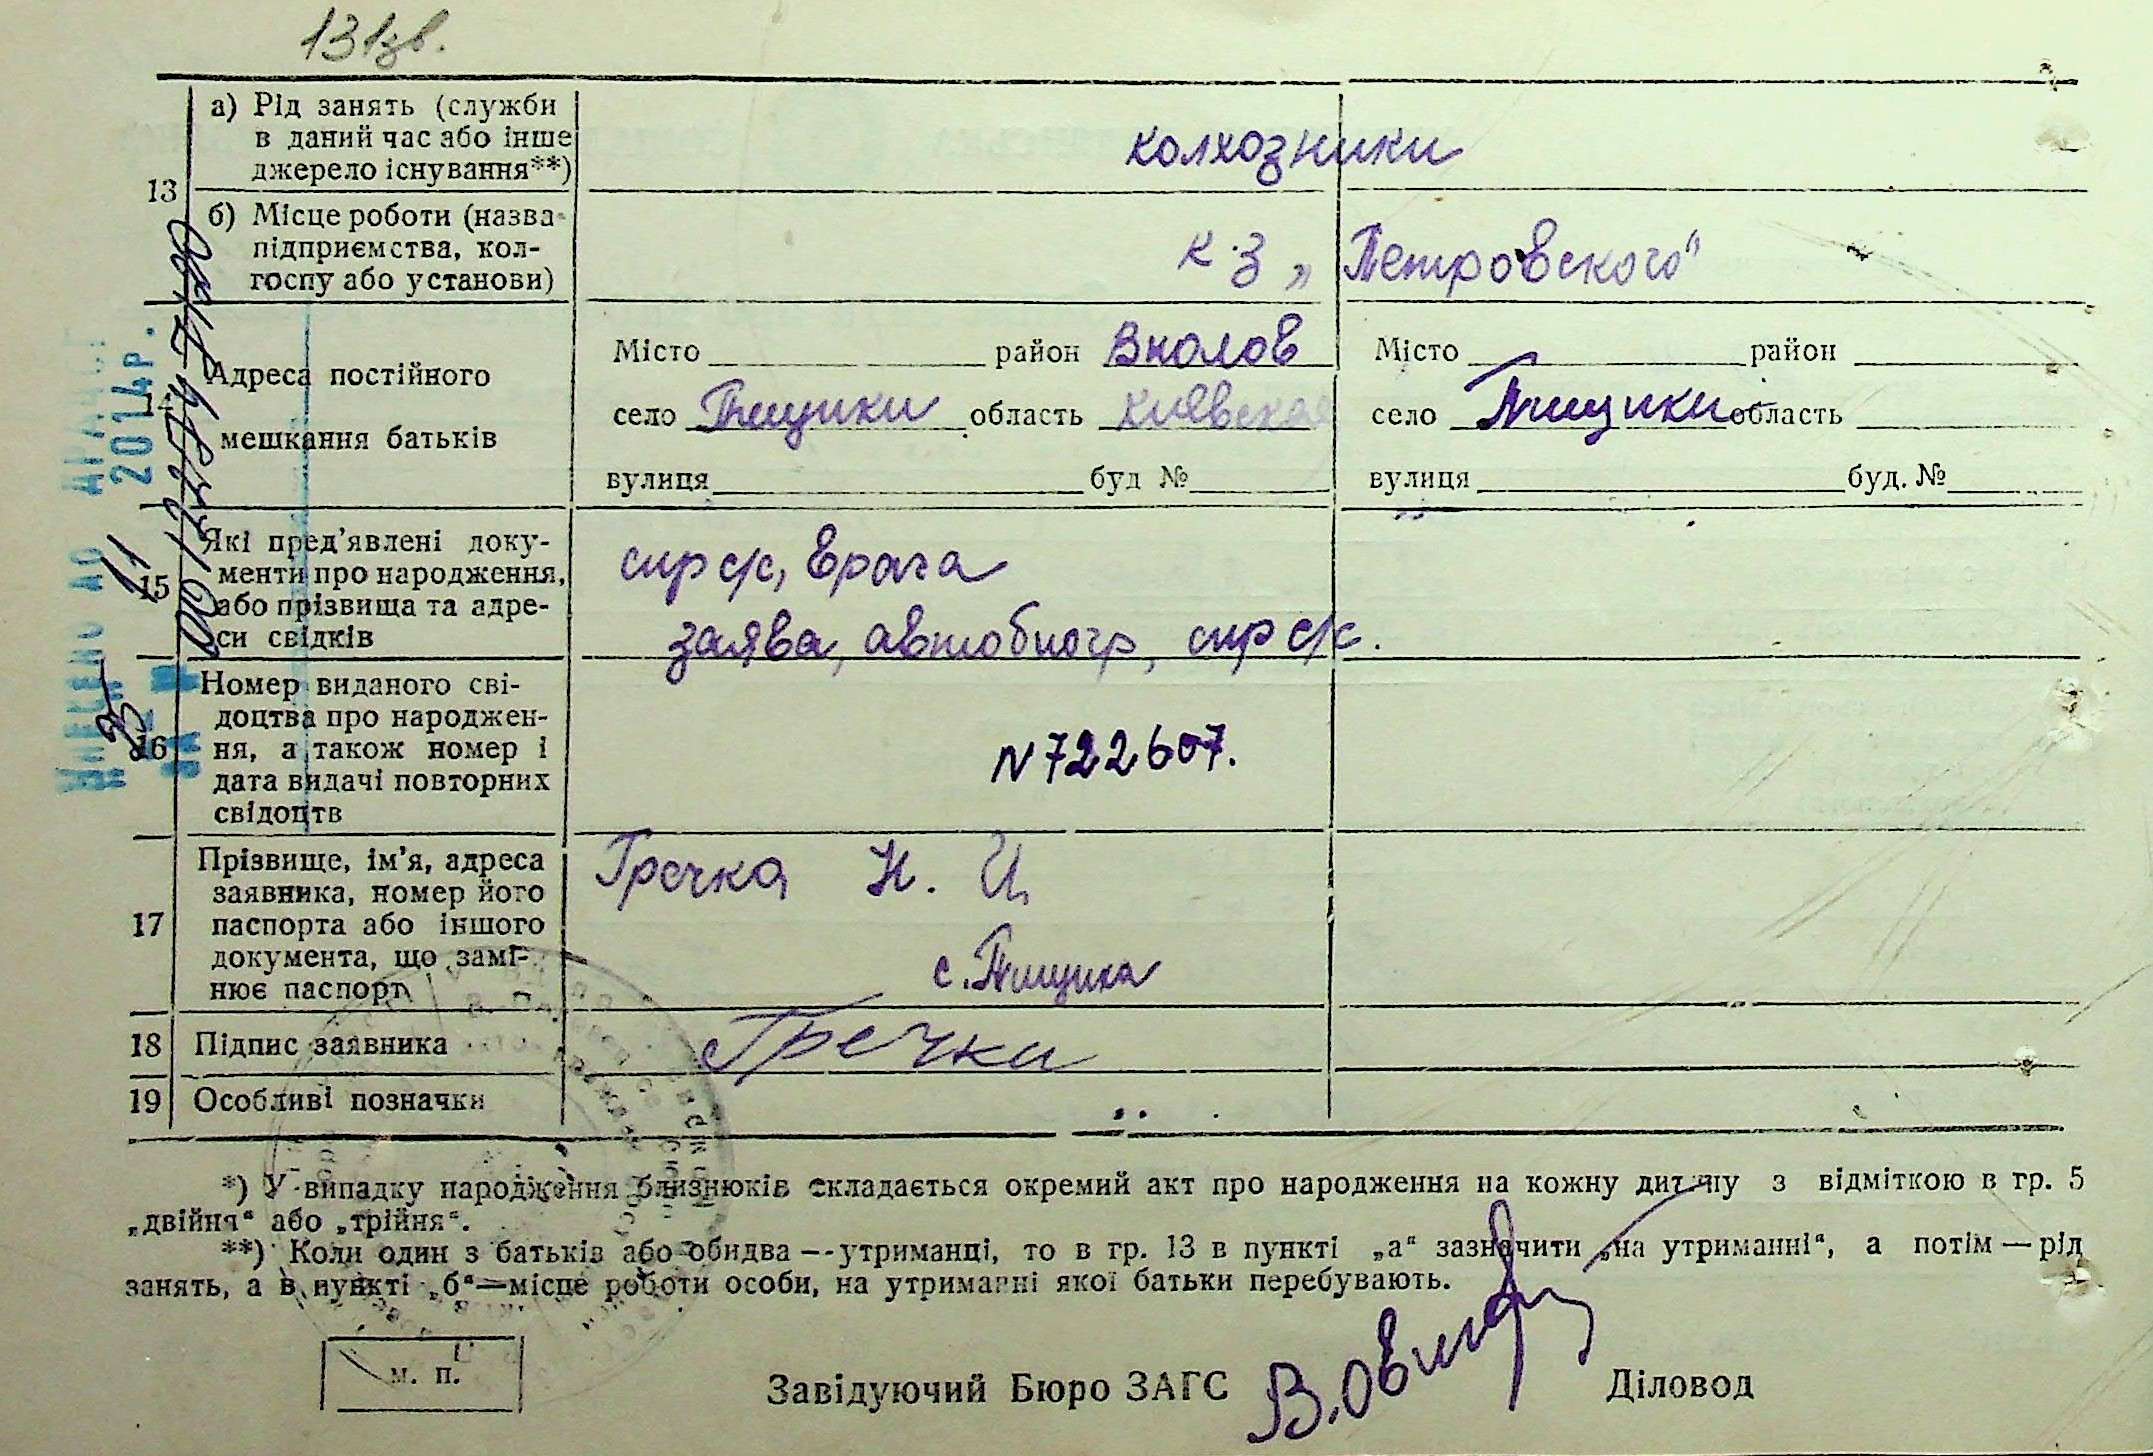 131зв.
13
а) Рід занять (служби
в даний час або інше
джерело існування**)
колхозники
б) Місце роботи (назва
підприємства, кол-
госпу або установи)
к-з „Петровского"
14
Адреса постійного
мешкання батьків
Місто район Вполов
село Пищики область Киевская
вулиця буд №
Місто район
село Пищики область
вулиця буд. №
15
Які пред'явлені доку-
менти про народження,
або прізвища та адре-
си свідків
спр с/с, Врача
заява, автобиогр, спр с/с.
16
Номер виданого сві-
доцтва про народжен-
ня, а також номер і
дата видачі повторних
свідоцтв
N 722607.
17
Прізвище, ім'я, адреса
заявника, номер його
паспорта або іншого
документа, що замі-
нює паспорт
Гречка Н. И,
с. Пищики
18 Підпис заявника
Гречка
19 Особливі позначки
*) У випадку народження близнюків складається окремий акт про народження на кожну дитину з відміткою в гр. 5
„двійня" або „трійня".
**) Коли один з батьків або обидва—утриманці, то в гр. 13 в пункті „а" зазначити „на утриманні", а потім—рід
занять, а в пункті „б"—місце роботи особи, на утриманні якої батьки перебувають.
м. п.
Завідуючий Бюро ЗАГС
Діловод
ВНЕСЕНО ДО ДРАЦС
11 2014р.
ЗА №